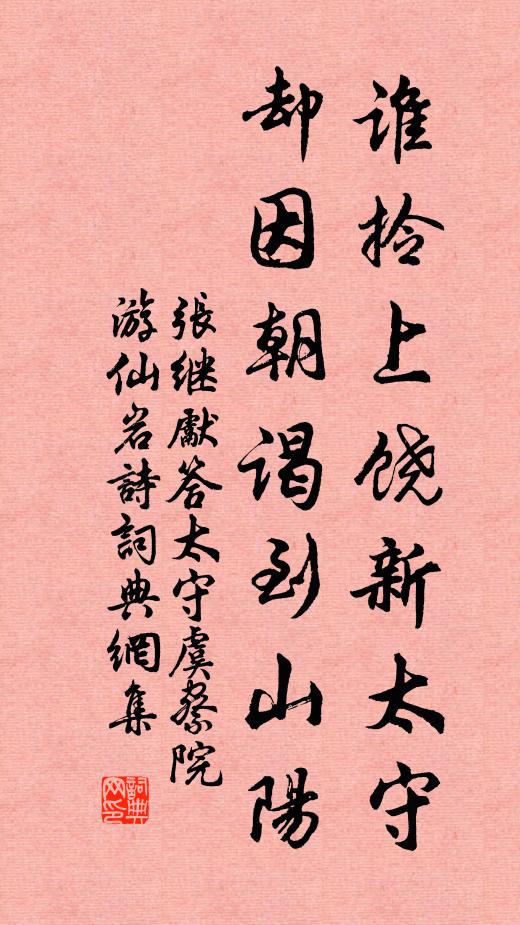 谁拾上饶新太守
却因朝谒到山陽
張继獻答太守虞察院
游仙岩詩詞典網集
詞典网印